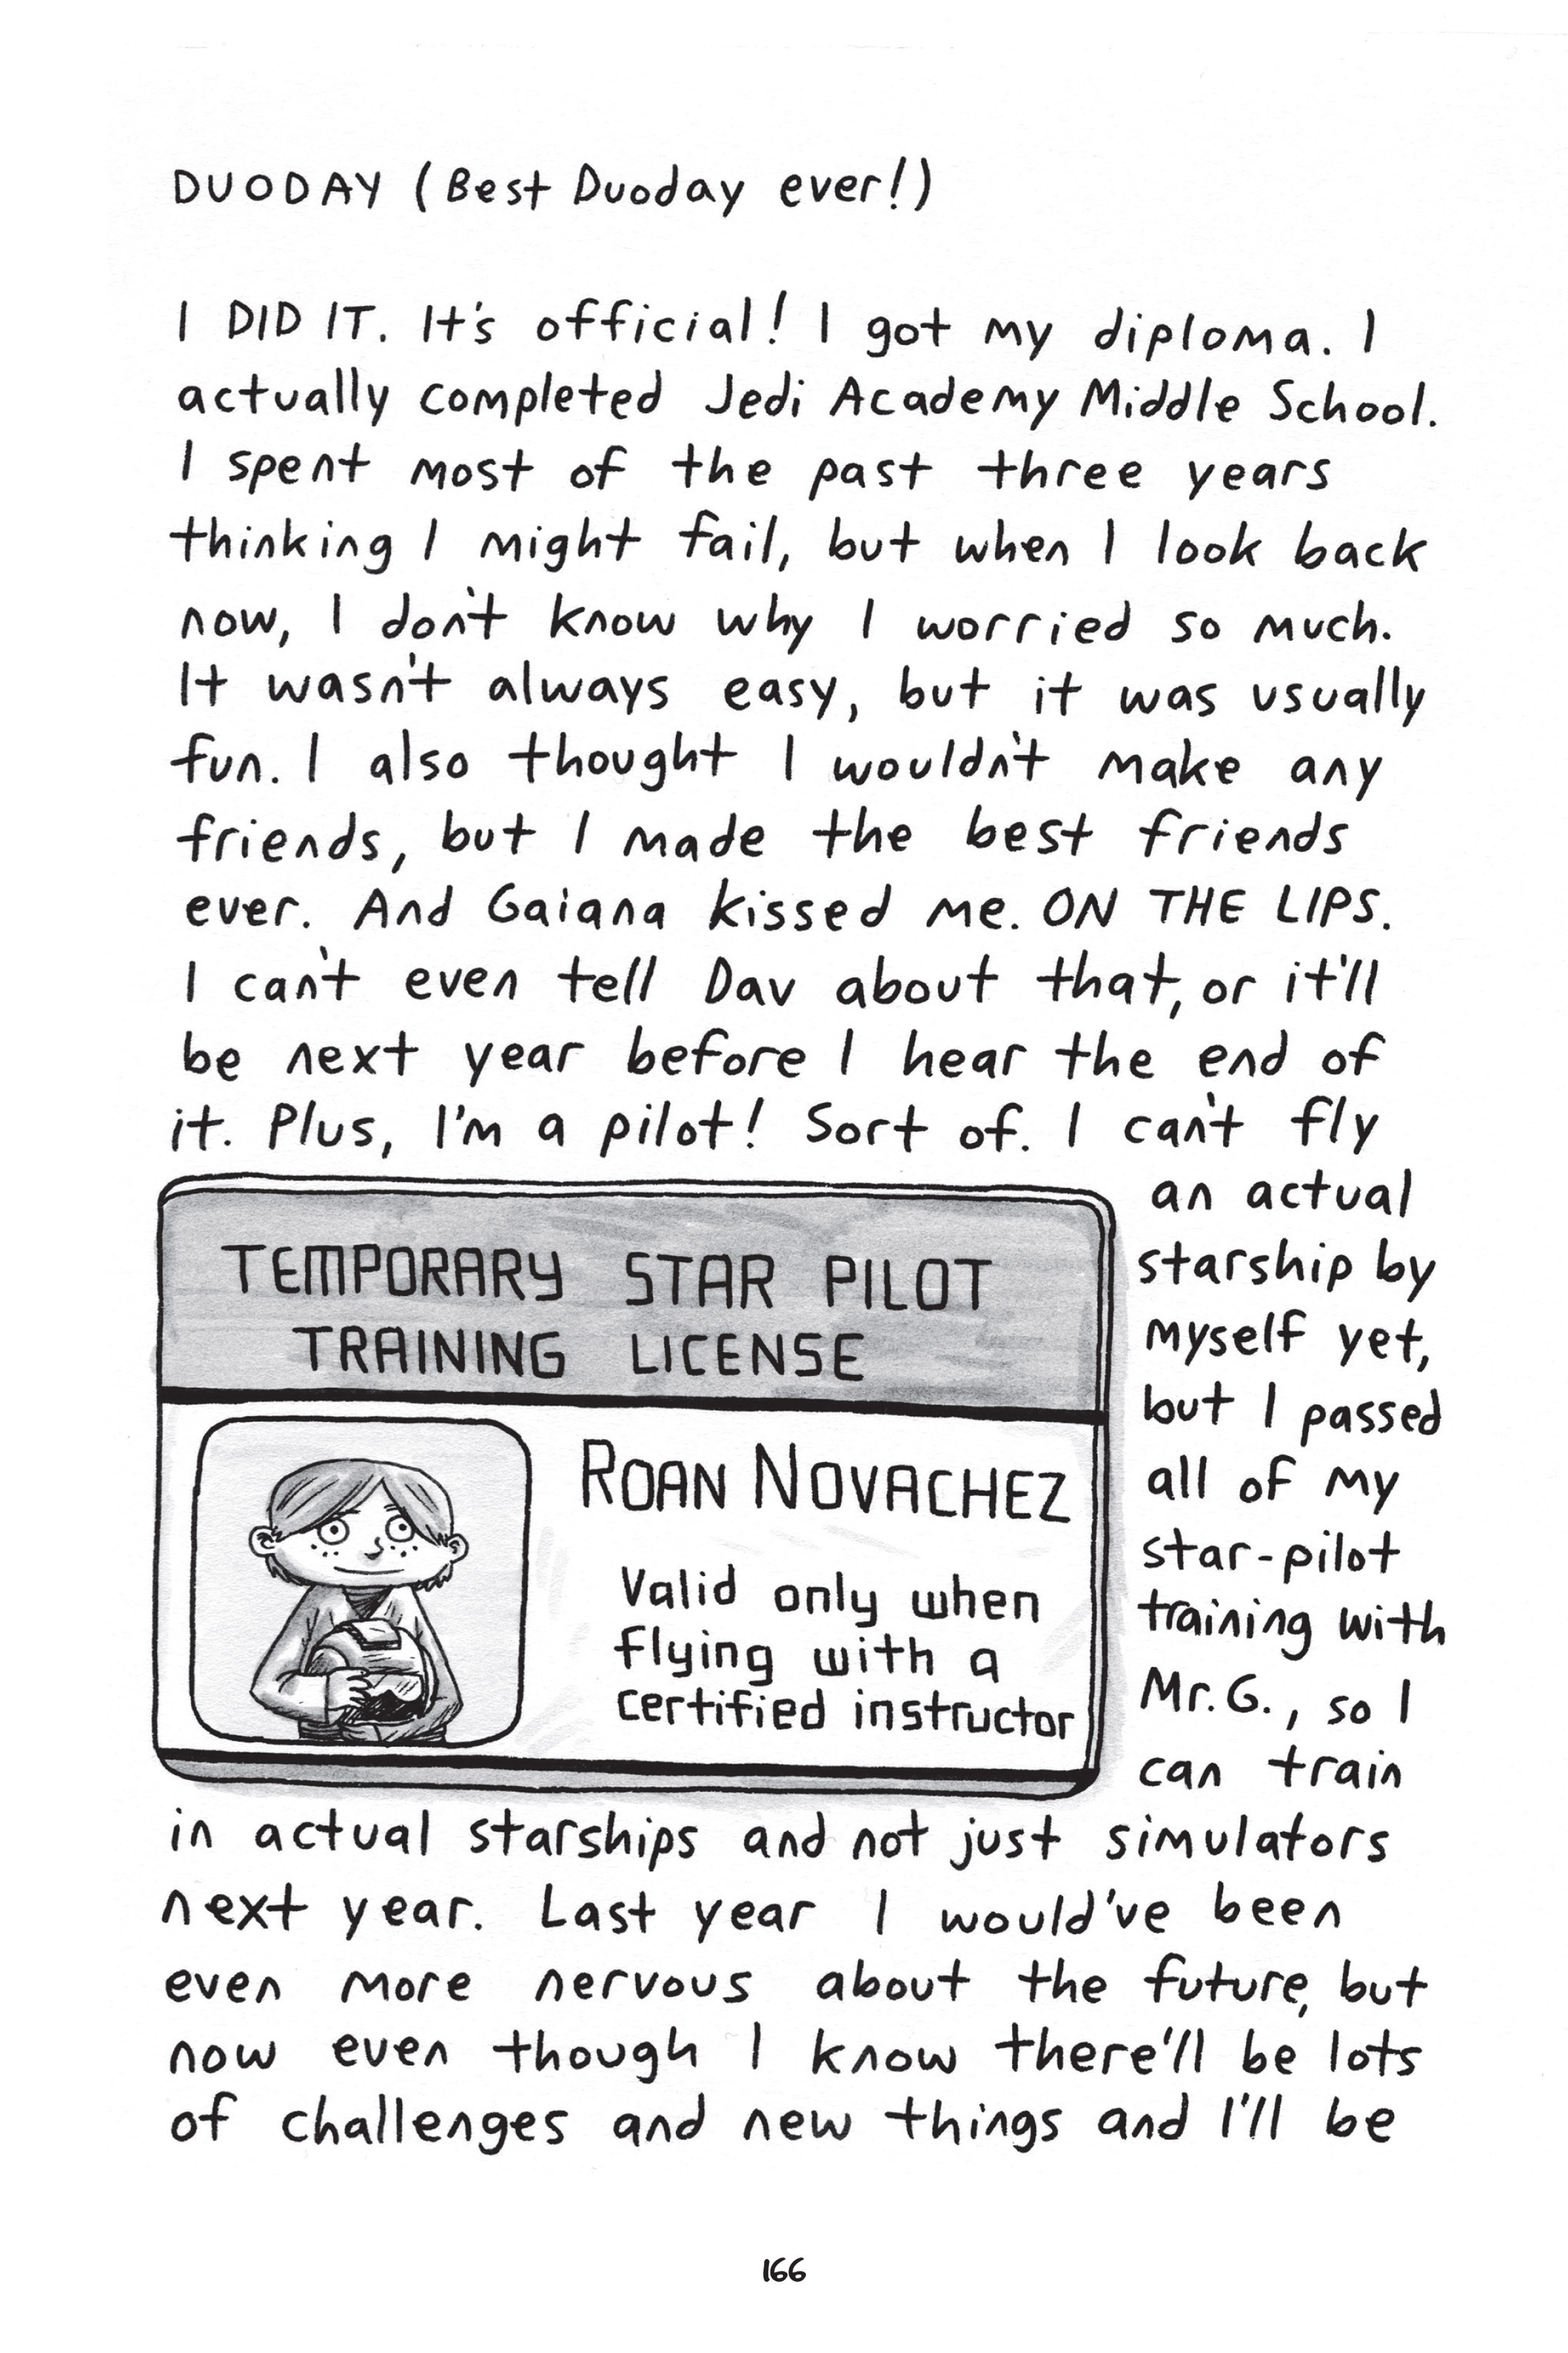 DUODAY (Best Duoday ever!)
I DID IT. It's official! I got my diploma. I
actually completed Jedi Academy Middle School.
I spent most of the past three years
thinking I might fail, but when I look back
now, I don't know why I worried so much.
It wasn't always easy, but it was usually
fun. I also thought I wouldn't make any
friends, but I made the best friends
ever. And Gaiana kissed me. ON THE LIPS.
I can't even tell Dav about that, or it'll
be next year before I hear the end of
it. Plus, I'm a pilot! Sort of. I can't fly
an actual
starship by
myself yet,
but I passed
all of my
star-pilot
training with
Mr. G., so I
can train
TEMPORARY STAR PILOT
TRAINING LICENSE
ROAN NOVACHEZ
Valid only when
flying with a
certified instructor
in actual starships and not just simulators
next year. Last year I would've been
even more nervous about the future, but
now even though I know there'll be lots
of challenges and new things and I'll be
166